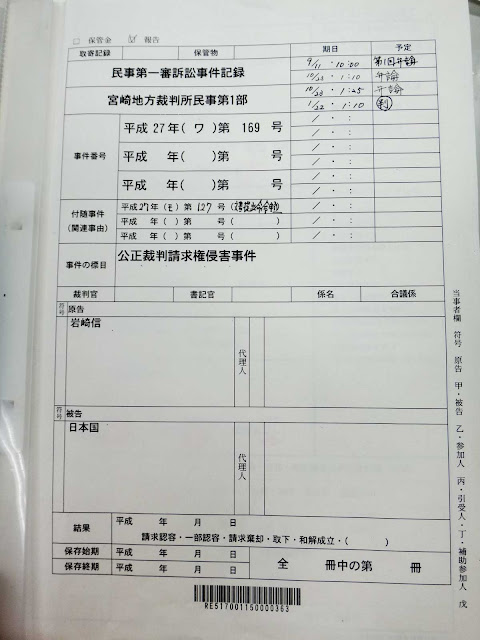 □ 保管金 ☑ 報告
取寄記録 保管物 期日 予定
民事第一審訴訟事件記録
宮崎地方裁判所民事第1部
9/11 ・ 10:00 第1回弁論
10/23 ・ 1:10 弁論
10/23 ・ 1:25 弁論
1/22 ・ 1:10 判
事件番号
平成 27年(ワ)第 169 号
平成 年( )第 号
平成 年( )第 号
付随事件
(関連事由)
平成27年(モ)第 127 号(文書提出命令申立)
平成 年( )第 号( )
平成 年( )第 号( )
事件の標目 公正裁判請求権侵害事件
裁判官 書記官 係名 合議係
符号 原告
岩崎信
代理人
符号 被告
日本国
代理人
結果 平成 年 月 日
請求認容・一部認容・請求棄却・取下・和解成立・( )
保存始期 平成 年 月 日
保存終期 平成 年 月 日
全 冊中の第 冊
RE517001150000363
当事者欄 符号 原告 甲・被告 乙・参加人 丙・引受人・丁・補助参加人 戊